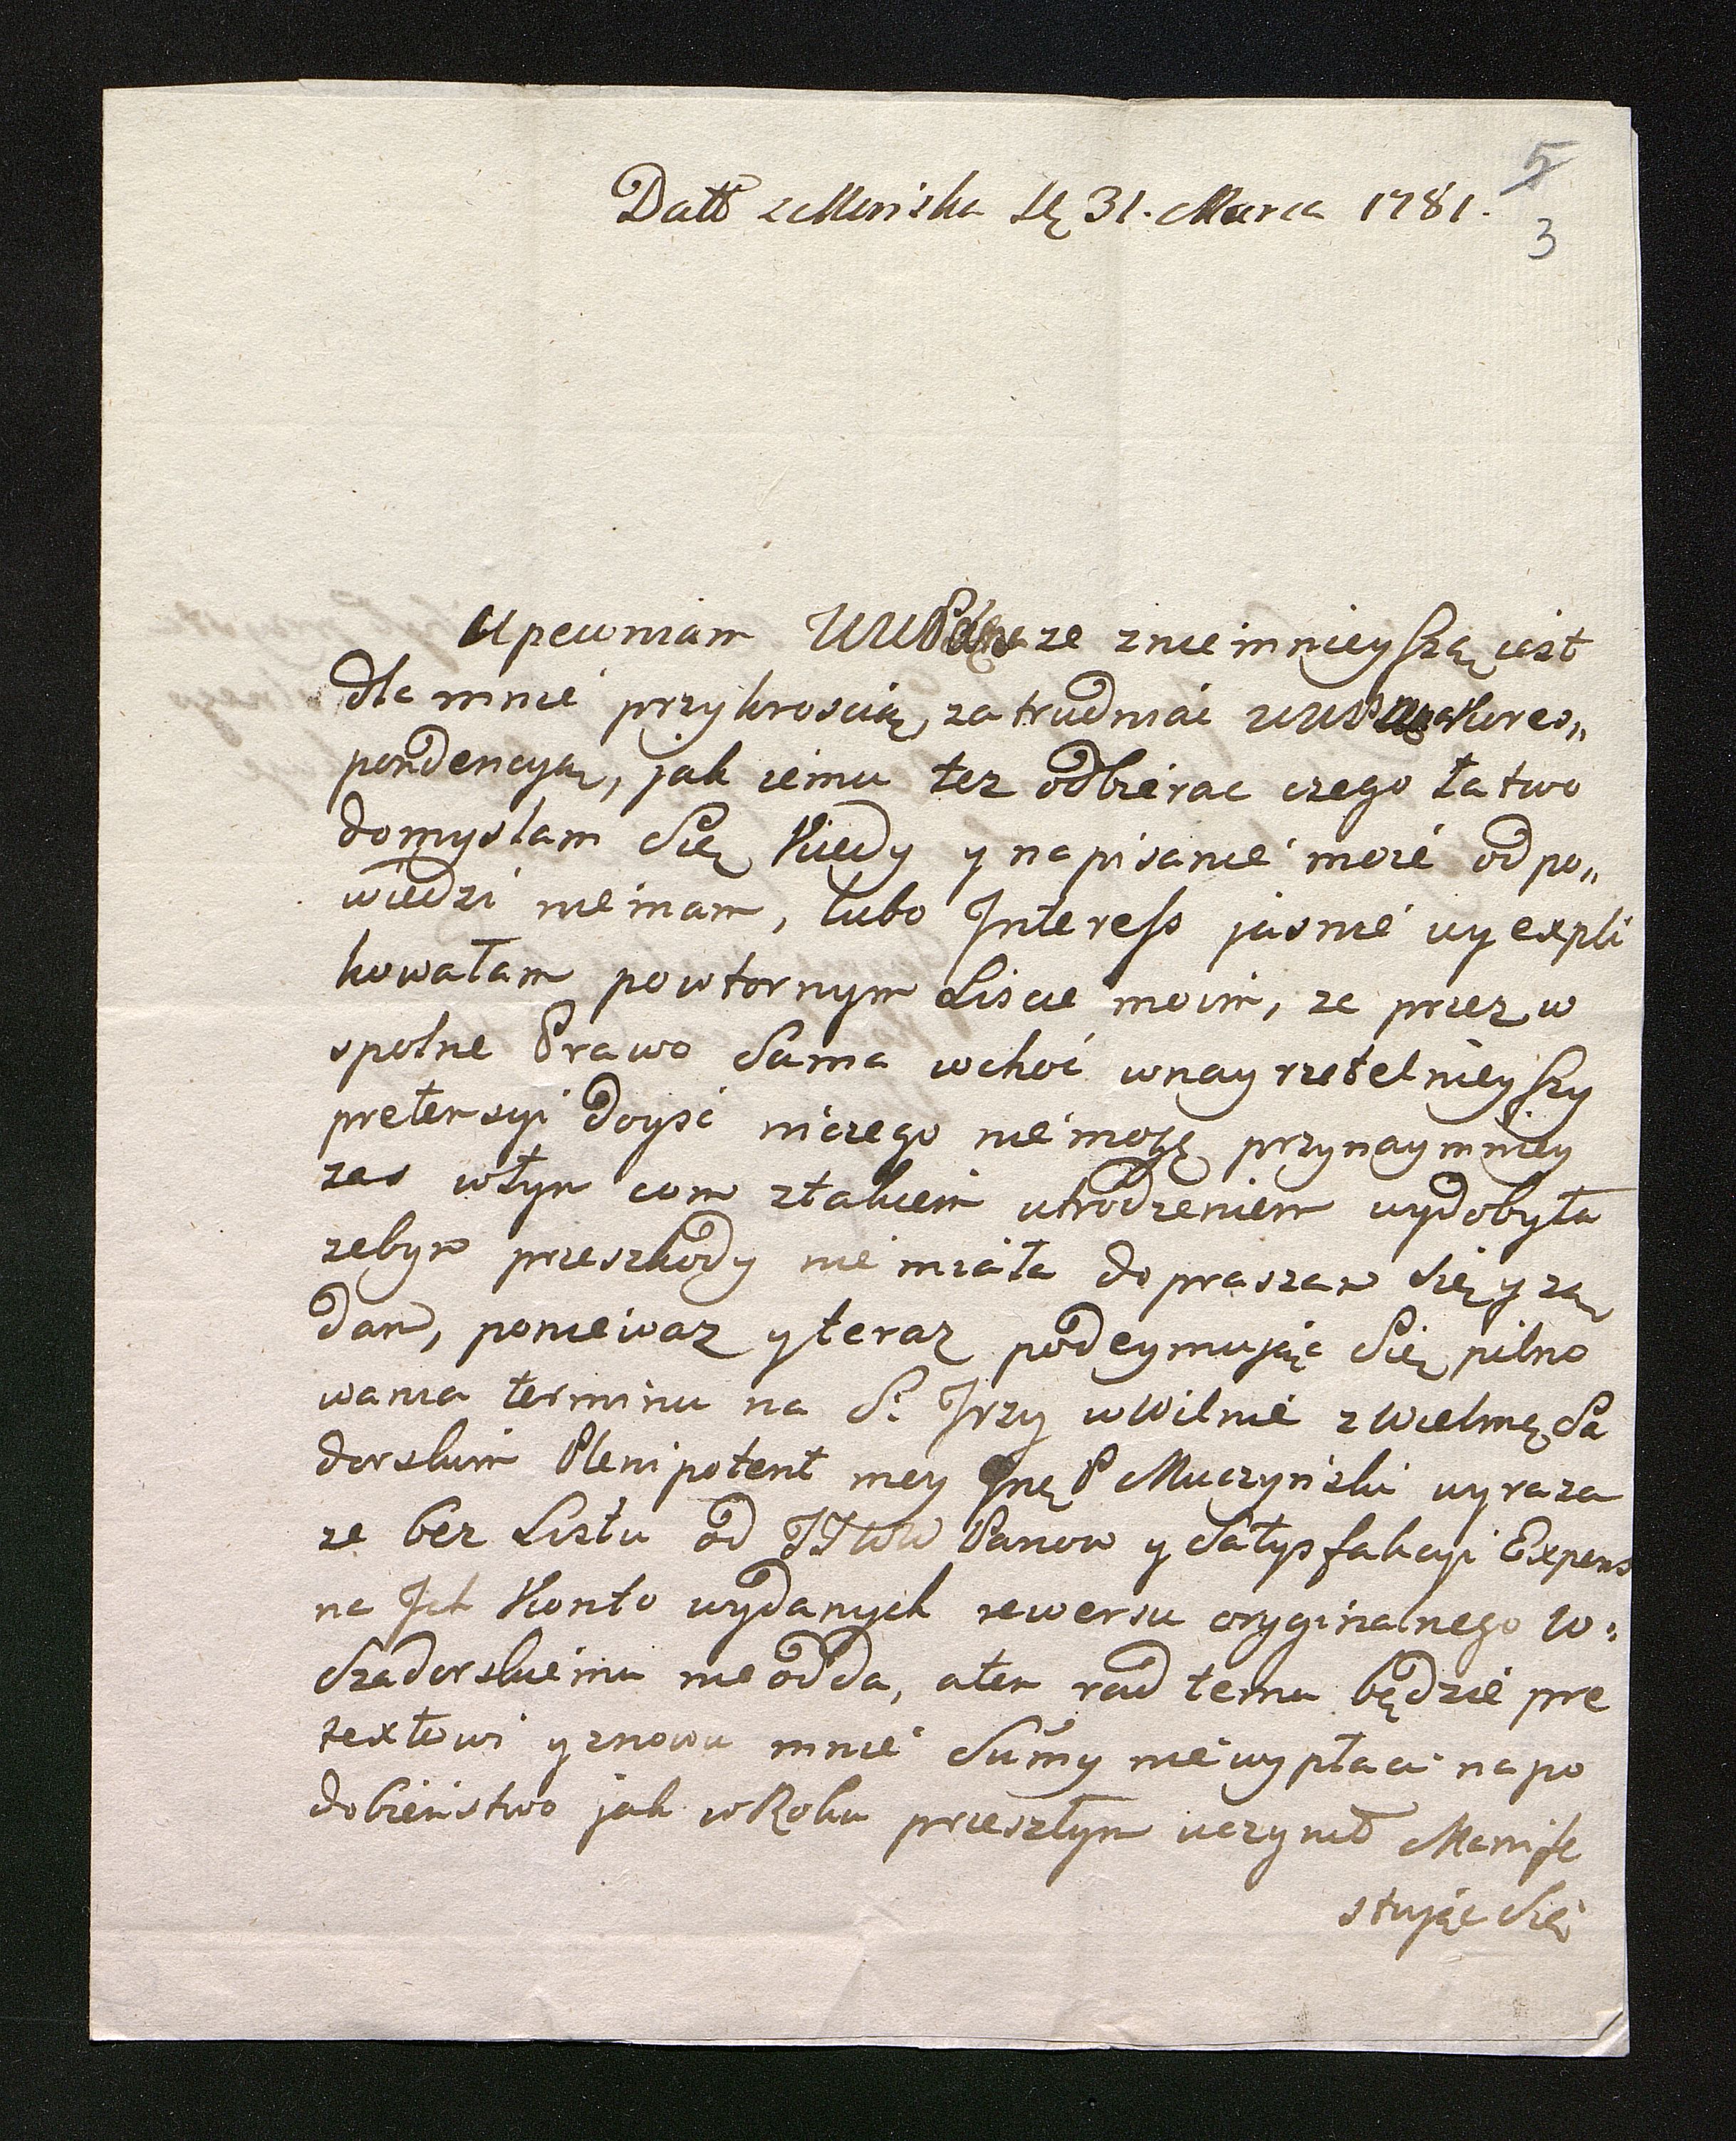 5
Datt z Mińska 31. Marca 1781.
3
Upewniam że zniemnieyszą jest
dla mnie przykroscią, zatrudniać kores„
pondencyą, jak jemu tez odbierac czego łatwo
domyslam Się kiedy y napisanie moie odpo„
wiedzi niemam, lubo Interess jasnie wyexpli
kowałam powtornym Liscie moim, ze przez w
spolne Prawo Sama wchoć wnayrzetelnieyszy
pretensyi Doyść niczego niemogę przynaymniey
zas wtym com ztakiem utrodzeniem wydobyła
zebym przeszkody nie miała dopraszam Się y zą
dam, poniewaz y teraz podeymująć Się pilno
wania terminu na S. Jrzy w Wilnie z Wielmę Sa
dorskim Plenipotent mey Jmę P Muczyński wyraza
ze bez Listu od JJWW Panow y Satysfakcyi Expens
na Jch Konto wydanych rewersu oryginalnego W:
Szadorskiemu nie odda, aten rad temu będzie pre
textowi y znowu mnie Summy niewypłaci na po
dobieństwo jak w Roku przeszłym uczynił Manife
stując Się